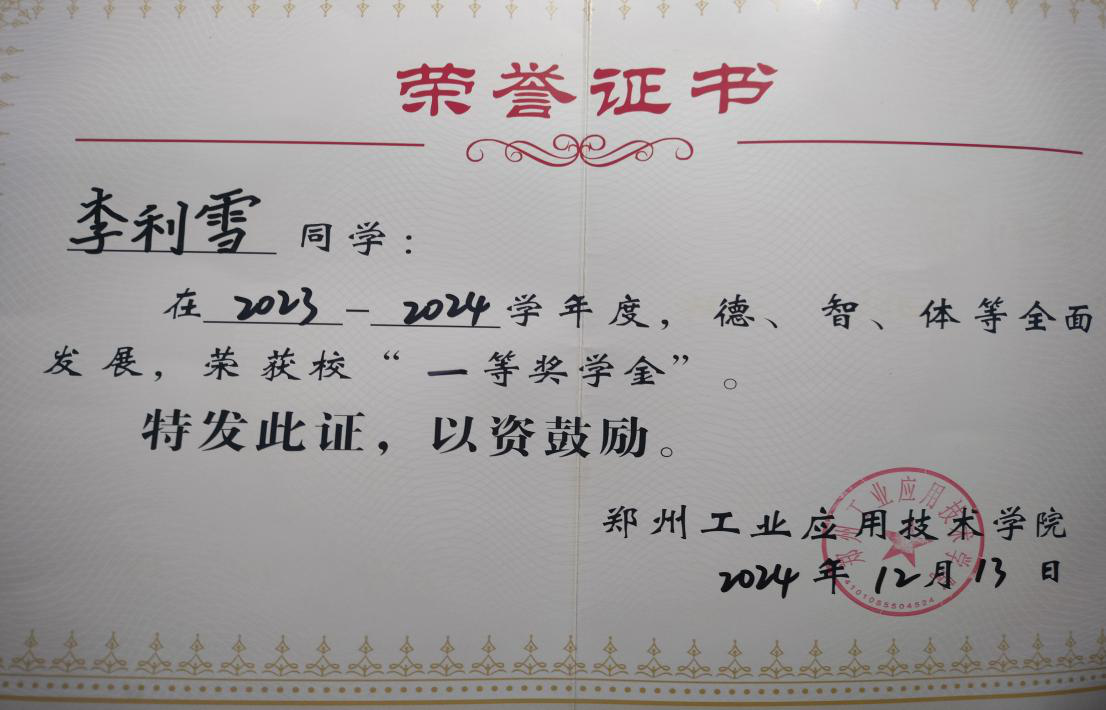 荣誉证书
李利雪 同学：
在 2023 — 2024 学年度，德、智、体等全面
发展，荣获校“一等奖学金”。
特发此证，以资鼓励。
郑州工业应用技术学院
2024 年 12 月 13 日
郑州工业应用技术学院
4101085504524